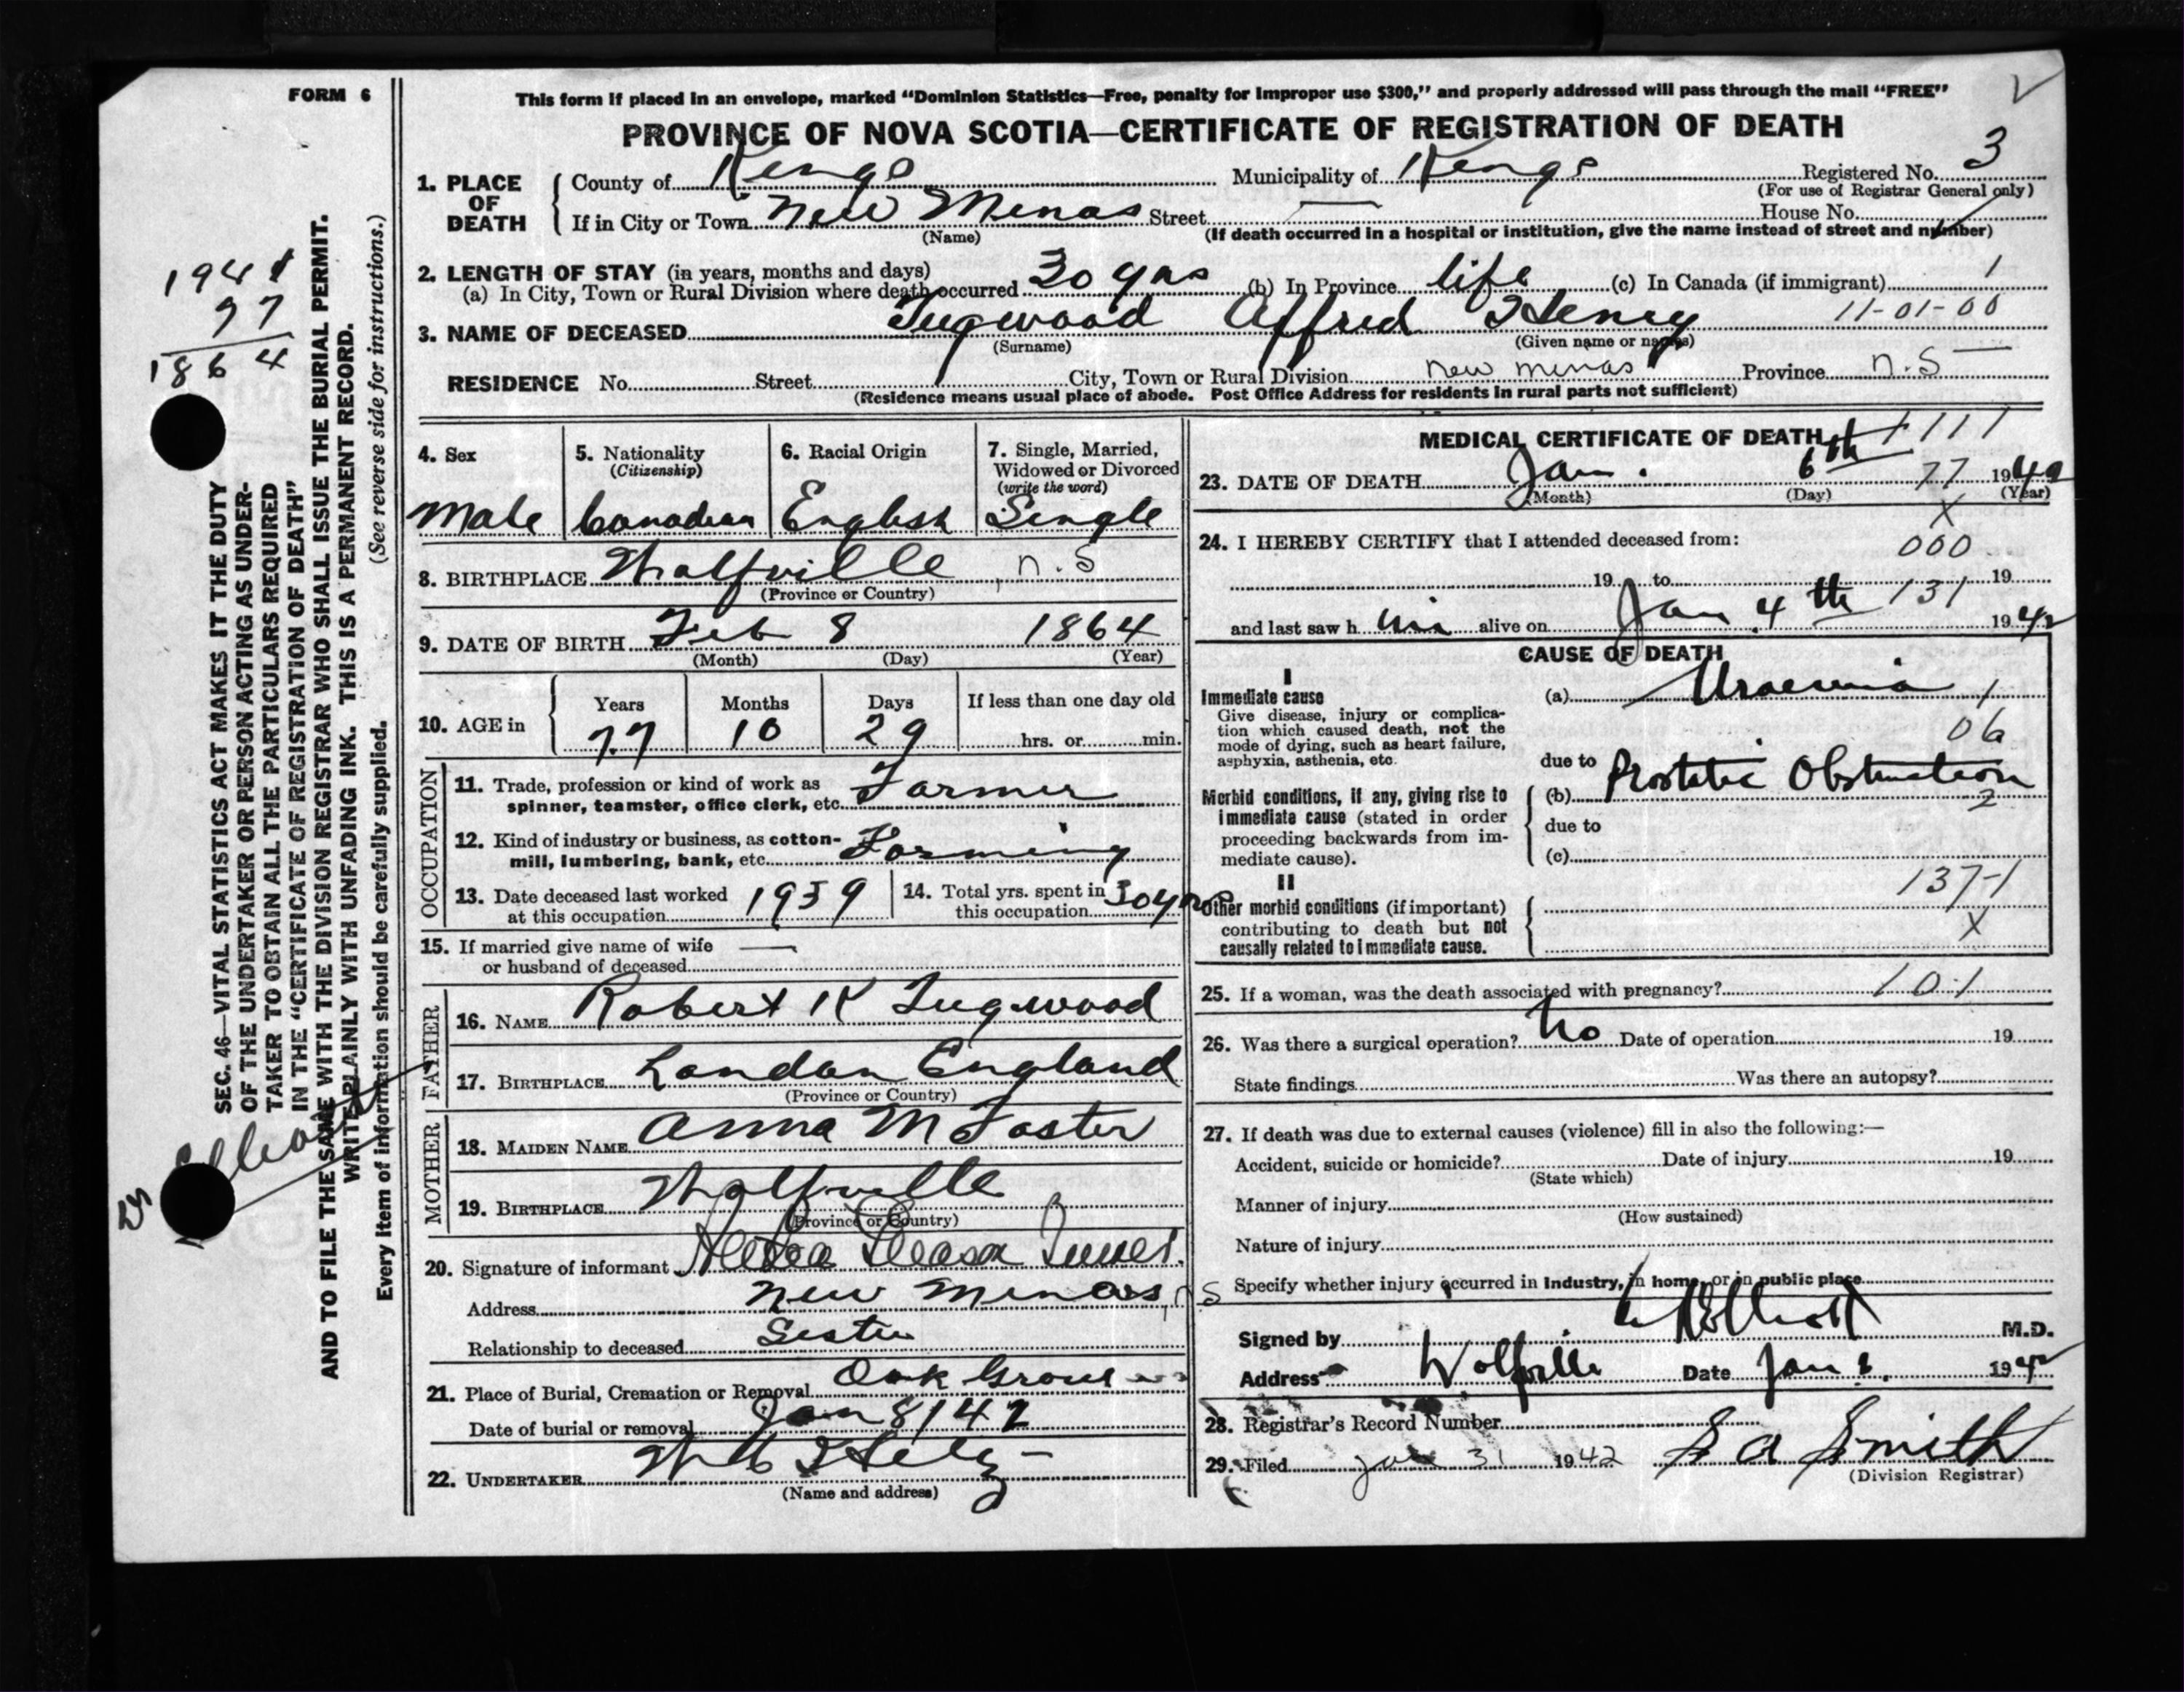 FORM 6
This form if placed in an envelope, marked “Dominion Statistics—Free, penalty for improper use $300,” and properly addressed will pass through the mail “FREE”
PROVINCE OF NOVA SCOTIA—CERTIFICATE OF REGISTRATION OF DEATH
1. PLACE OF DEATH County of Kings Municipality of Kings Registered No. 3
(For use of Registrar General only)
If in City or Town New Minas Street — House No.
(Name) (If death occurred in a hospital or institution, give the name instead of street and number)
2. LENGTH OF STAY (in years, months and days)
(a) In City, Town or Rural Division where death occurred 30 yrs (b) In Province life (c) In Canada (if immigrant)
3. NAME OF DECEASED Tugwood Alfred Henry 11-01-00
(Surname) (Given name or names)
RESIDENCE No. Street City, Town or Rural Division New Minas Province N.S
(Residence means usual place of abode. Post Office Address for residents in rural parts not sufficient)
1941
77
1864
SEC. 46—VITAL STATISTICS ACT MAKES IT THE DUTY
OF THE UNDERTAKER OR PERSON ACTING AS UNDER-
TAKER TO OBTAIN ALL THE PARTICULARS REQUIRED
IN THE “CERTIFICATE OF REGISTRATION OF DEATH”
AND TO FILE THE SAME WITH THE DIVISION REGISTRAR WHO SHALL ISSUE THE BURIAL PERMIT.
WRITE PLAINLY WITH UNFADING INK. THIS IS A PERMANENT RECORD.
(See reverse side for instructions.)
Every item of information should be carefully supplied.
4. Sex 5. Nationality 6. Racial Origin 7. Single, Married,
(Citizenship) Widowed or Divorced
(write the word)
Male Canadian English Single
8. BIRTHPLACE Wolfville, N.S
(Province or Country)
9. DATE OF BIRTH Feb 8 1864
(Month) (Day) (Year)
10. AGE in Years Months Days If less than one day old
77 10 29 hrs. or min.
OCCUPATION
11. Trade, profession or kind of work as
spinner, teamster, office clerk, etc. Farmer
12. Kind of industry or business, as cotton-
mill, lumbering, bank, etc. Farming
13. Date deceased last worked
at this occupation 1939
14. Total yrs. spent in
this occupation 30 yrs
15. If married give name of wife —
or husband of deceased
FATHER
16. NAME Robert K Tugwood
17. BIRTHPLACE London England
(Province or Country)
MOTHER
18. MAIDEN NAME Anna M Foster
19. BIRTHPLACE Wolfville
(Province or Country)
20. Signature of informant
Address New Minas, N S
Relationship to deceased Sister
21. Place of Burial, Cremation or Removal Oak Grove
Date of burial or removal Jan 8/42
22. UNDERTAKER
(Name and address)
MEDICAL CERTIFICATE OF DEATH 1111
23. DATE OF DEATH Jan. 6th 77 1942
(Month) (Day) (Year)
X
24. I HEREBY CERTIFY that I attended deceased from: 000
19 to 19
131
and last saw h im alive on Jan 4th 1942
CAUSE OF DEATH
I
Immediate cause (a) Uraemia 1
Give disease, injury or complica-
tion which caused death, not the
mode of dying, such as heart failure,
asphyxia, asthenia, etc.
due to
Morbid conditions, if any, giving rise to (b) Prostatic Obstruction
2
immediate cause (stated in order due to
proceeding backwards from im-
mediate cause). (c)
II 137-1
Other morbid conditions (if important)
contributing to death but not X
causally related to immediate cause.
25. If a woman, was the death associated with pregnancy? 101
26. Was there a surgical operation? No Date of operation 19
State findings Was there an autopsy?
27. If death was due to external causes (violence) fill in also the following:—
Accident, suicide or homicide? Date of injury 19
(State which)
Manner of injury
(How sustained)
Nature of injury
Specify whether injury occurred in industry, in home, or in public place
Signed by Elliott M.D.
Address Wolfville Date Jan 1942
28. Registrar's Record Number
29. Filed Jan 31 1942 S A Smith
(Division Registrar)